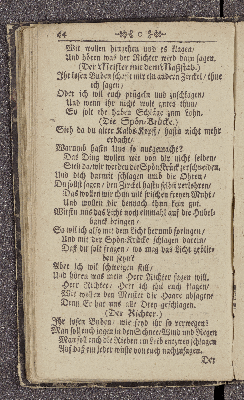 64
Wir wollen hingehen und es klagen/
Und hören was der Richter werd dazu sagen.
(Der Meister mit dem Maßstab.)
Ihr losen Buben schafft mir ein andern Zirckel/ thue
ich sagen/
Oder ich will euch prügeln und zuschlagen/
Und wenn ihr nicht wolt gutes thun/
So solt ihr haben Schläge zum Lohn.
(Die Spön-Krücke.)
Sieh da du alter Kalbs-Kopff/ hastu nicht mehr
erdacht/
Warumb hastu uns so ausgemacht?
Das Ding wollen wir von dir nicht leiden/
Und dich darmit schlagen umb die Ohren/
Du solst sagen/ den Zirckel hastu selber verlohren/
Das wollen wir thun mit frischem freyen Muht/
Und wollen dir dennoch thun kein gut.
Wirstu uns das Licht noch einmahl auf die Hubel-
banck bringen/
So will ich also mit dem Licht herumb springen/
Und mit der Spön-Krücke schlagen darein/
Daß du solt fragen/ wo mag das Licht geblie-
ben seyn?
Aber ich will schweigen still/
Und hören was mein Herr Richter sagen will.
Herr Richter/ Herr ich thu euch klagen/
Wir wollen den Meister die Haare absagen
Denn Er hat uns alle Drey geschlagen.
(Der Richter.)
Ihr losen Buben/ wie seyd ihr so verwegen?
Man soll euch jagen in den Schnee/Wind und Regen
Man soll euch die Rieben im Leib entzwey schlagen
Auf daß ein jeder wisse von euch nachzusagen.
Der